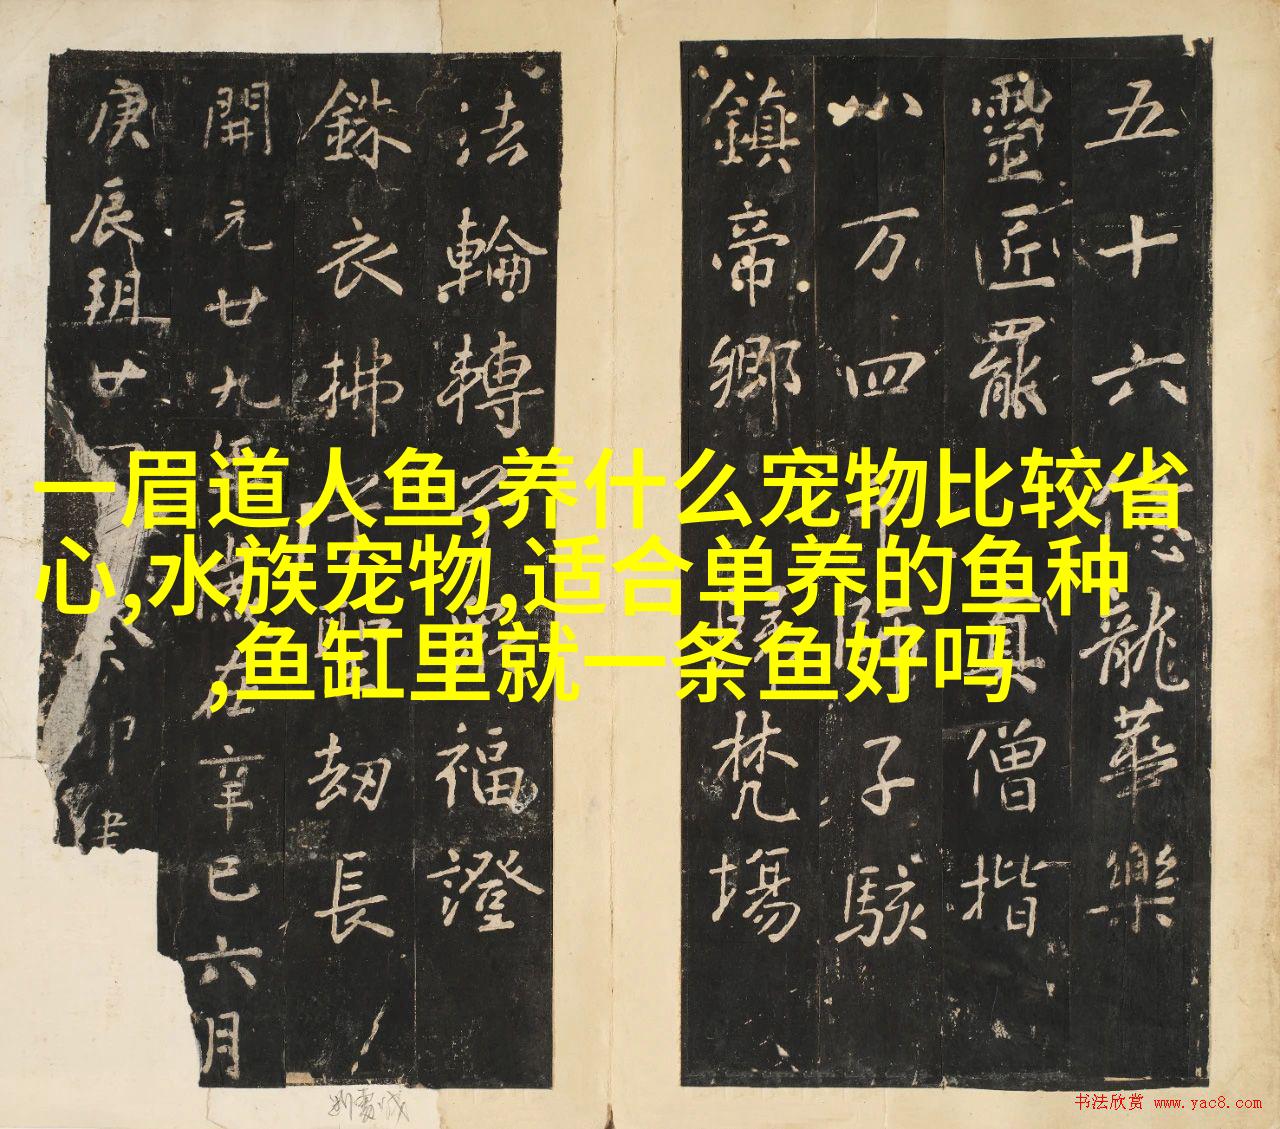 一眉道人鱼,养什么宠物比较省
心,水族宠物,适合单养的鱼种
,鱼缸里就一条鱼好吗
五十六億龍華樂
靈匠罷真僧揩
八万四子駭
鎮帝鄉梵場
法輪轉福證
銖衣拂劫長
開元廿九在辛巳六月
庚辰朔廿卯建
书法欣赏 www.yac8.com